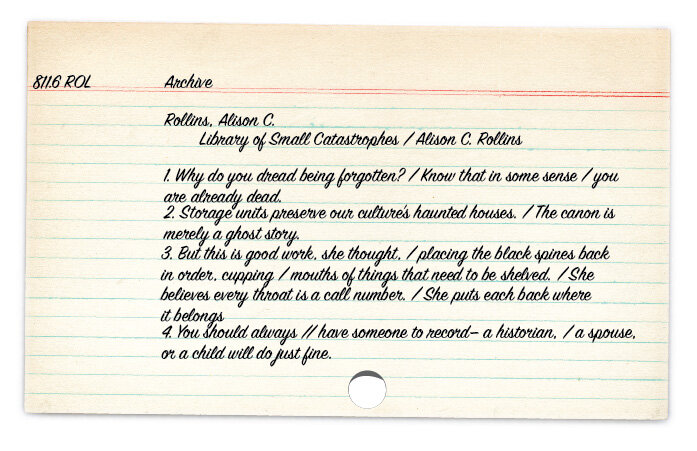 811.6 ROL Archive
Rollins, Alison C.
Library of Small Catastrophes / Alison C. Rollins
1. Why do you dread being forgotten? / Know that in some sense / you
are already dead.
2. Storage units preserve our culture's haunted houses. / The canon is
merely a ghost story.
3. But this is good work, she thought, / placing the black spines back
in order, cupping / mouths of things that need to be shelved. / She
believes every throat is a call number. / She puts each back where
it belongs
4. You should always // have someone to record– a historian, / a spouse,
or a child will do just fine.